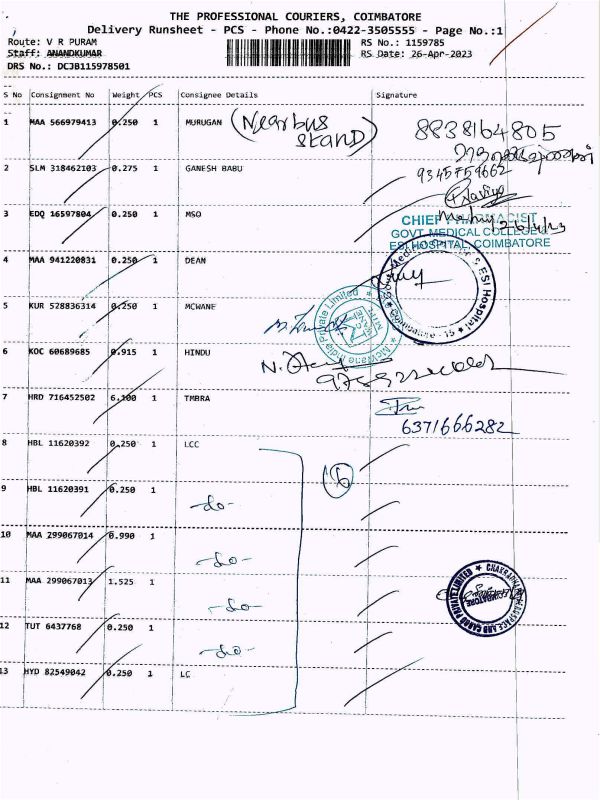 THE PROFESSIONAL COURIERS, COIMBATORE
Delivery Runsheet - PCS - Phone No.:0422-3505555 - Page No.:1
Route: V R PURAM RS No.: 1159785
Staff: ANANDKUMAR RS Date: 26-Apr-2023
DRS No.: DCJB115978501
S No Consignment No Weight PCS Consignee Details Signature
1 MAA 566979413 0.250 1 MURUGAN (Near bus stand) 8838164805
2 SLM 318462103 0.275 1 GANESH BABU 9345759662
3 EDQ 16597804 0.250 1 MSO
CHIEF PHARMACIST
GOVT. MEDICAL COLLEGE &
ESI HOSPITAL, COIMBATORE
4 MAA 941220831 0.250 1 DEAN
5 KUR 528836314 0.250 1 MCWANE
McWane India Private Limited
6 KOC 60689685 0.915 1 HINDU
7 HRD 716452502 6.100 1 TMBRA
6371666282
8 HBL 11620392 0.250 1 LCC
6
9 HBL 11620391 0.250 1 -do-
10 MAA 299067014 0.990 1 -do-
11 MAA 299067013 1.525 1 -do-
12 TUT 6437768 0.250 1 -do-
13 HYD 82549042 0.250 1 LC